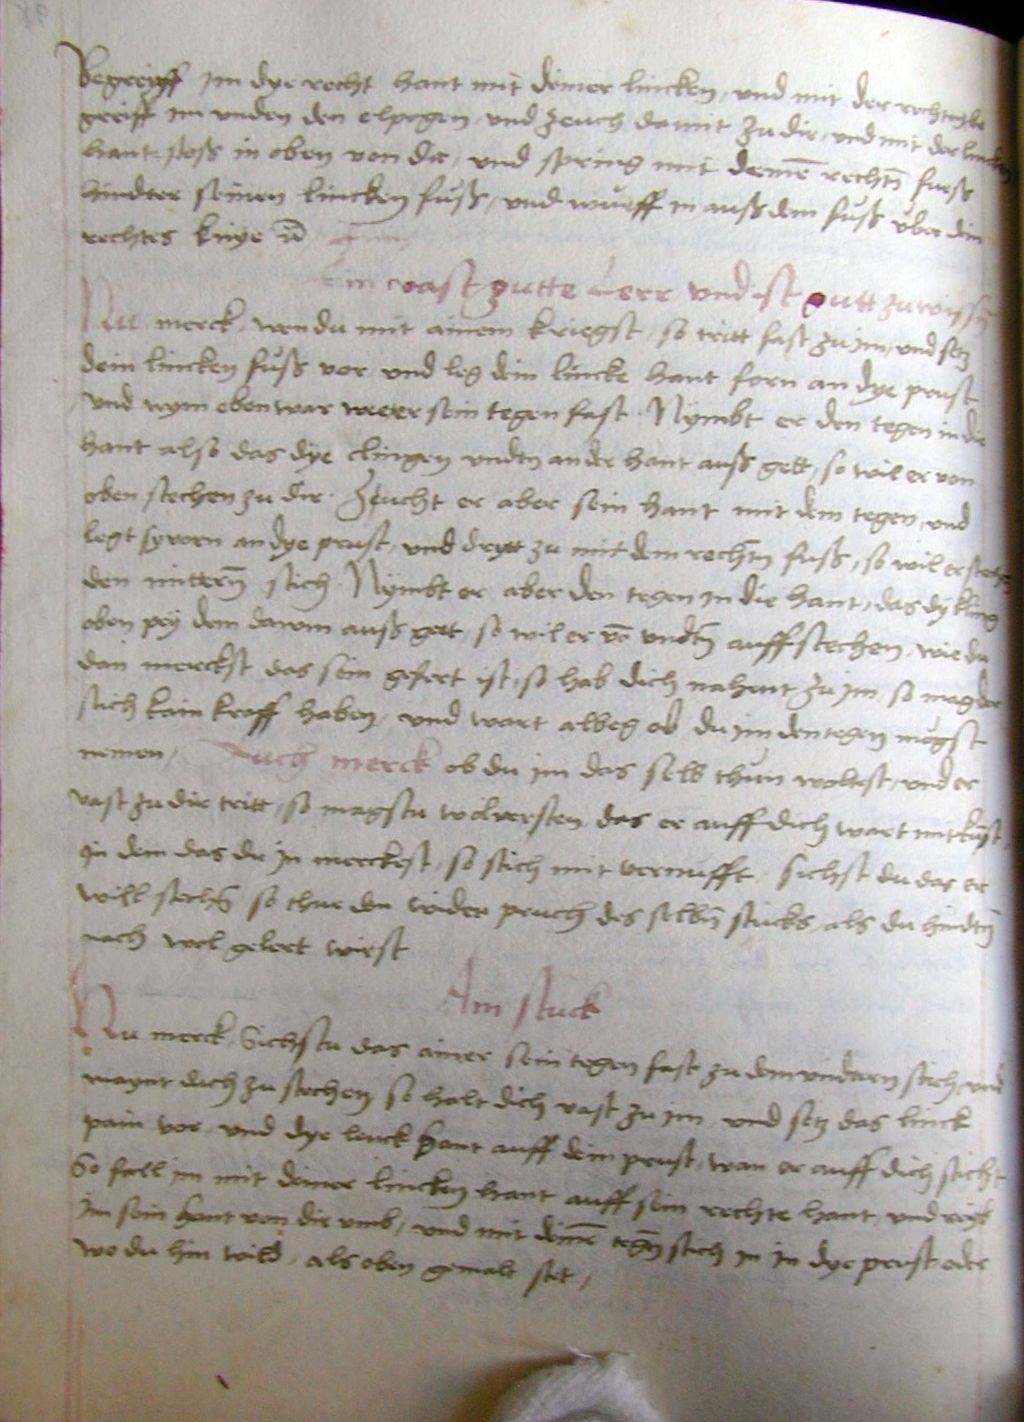 Begreiff im dye recht hant mit deiner lincken, und mit der rechten be
greiff im unden den elpogen, und zeuch damit zu dir, und mit der lincken
hant stoss in oben von dir, und spring mit deinē rechtn̄ fuess
hindter seinen lincken fuß, und wurff in auß dem fuß uber dein
rechtes knye
Ein vast gutte Lere und ist gutt zu wissn̄
Nu merck, wen du mit ainem kriegst, so tritt fast zu im, und setz
dein lincken fuß vor und leg dein lincke hant forn an dye prust
und nym eben war wie er sein tegen fast. Nymbt er den tegen in die
hant also das dye clingen undtn an der hant auß gett, so wil er von
oben stechen zu dir. Zeucht er aber sein hant mit dem tegen, und
legt sy vorn an dye prust, und drytt zu mit dem rechtn̄ fuß, so wil er stechn̄
den mittern̄ stich. Nymbt er aber den tegen in die hant, das dy kling
oben pey dem dawm auß gett, so wil er vō undtn̄ auff stechen, wie du
dan merckst das sein gefert ist, so hab dich nahent zu im, so mag der
stich kain krafft haben, und wart albeg ob du im den tegen mugst
nemen, Auch merck ob du im das selb thun woltest, und er
vast zu dir tritt, so magstu wol versten, das er auff dich wart mit kunst,
In dem das du in merckest, so stich mit vernufft, sichst du das er
will stechn̄ so thue den wider pruch des selbn̄ stucks, als du hindtn̄
nach wol gelert wirst
Ain stuck
Nu merck, Sichstu das ainer sein tegen fast zu dem undtern stich, und
maynt dich zu stechen so halt dich vast zu im und setz das linck
pain vor, und dye linck hant auff dein prust, wan er auff dich sticht
So fall im mit deiner lincken hant auff sein rechte hant, und reyb
im sein hant von dir umb, und mit deinē tegn̄ stich in in dye prust oder
wo du hin wild, als oben gemalt stet,